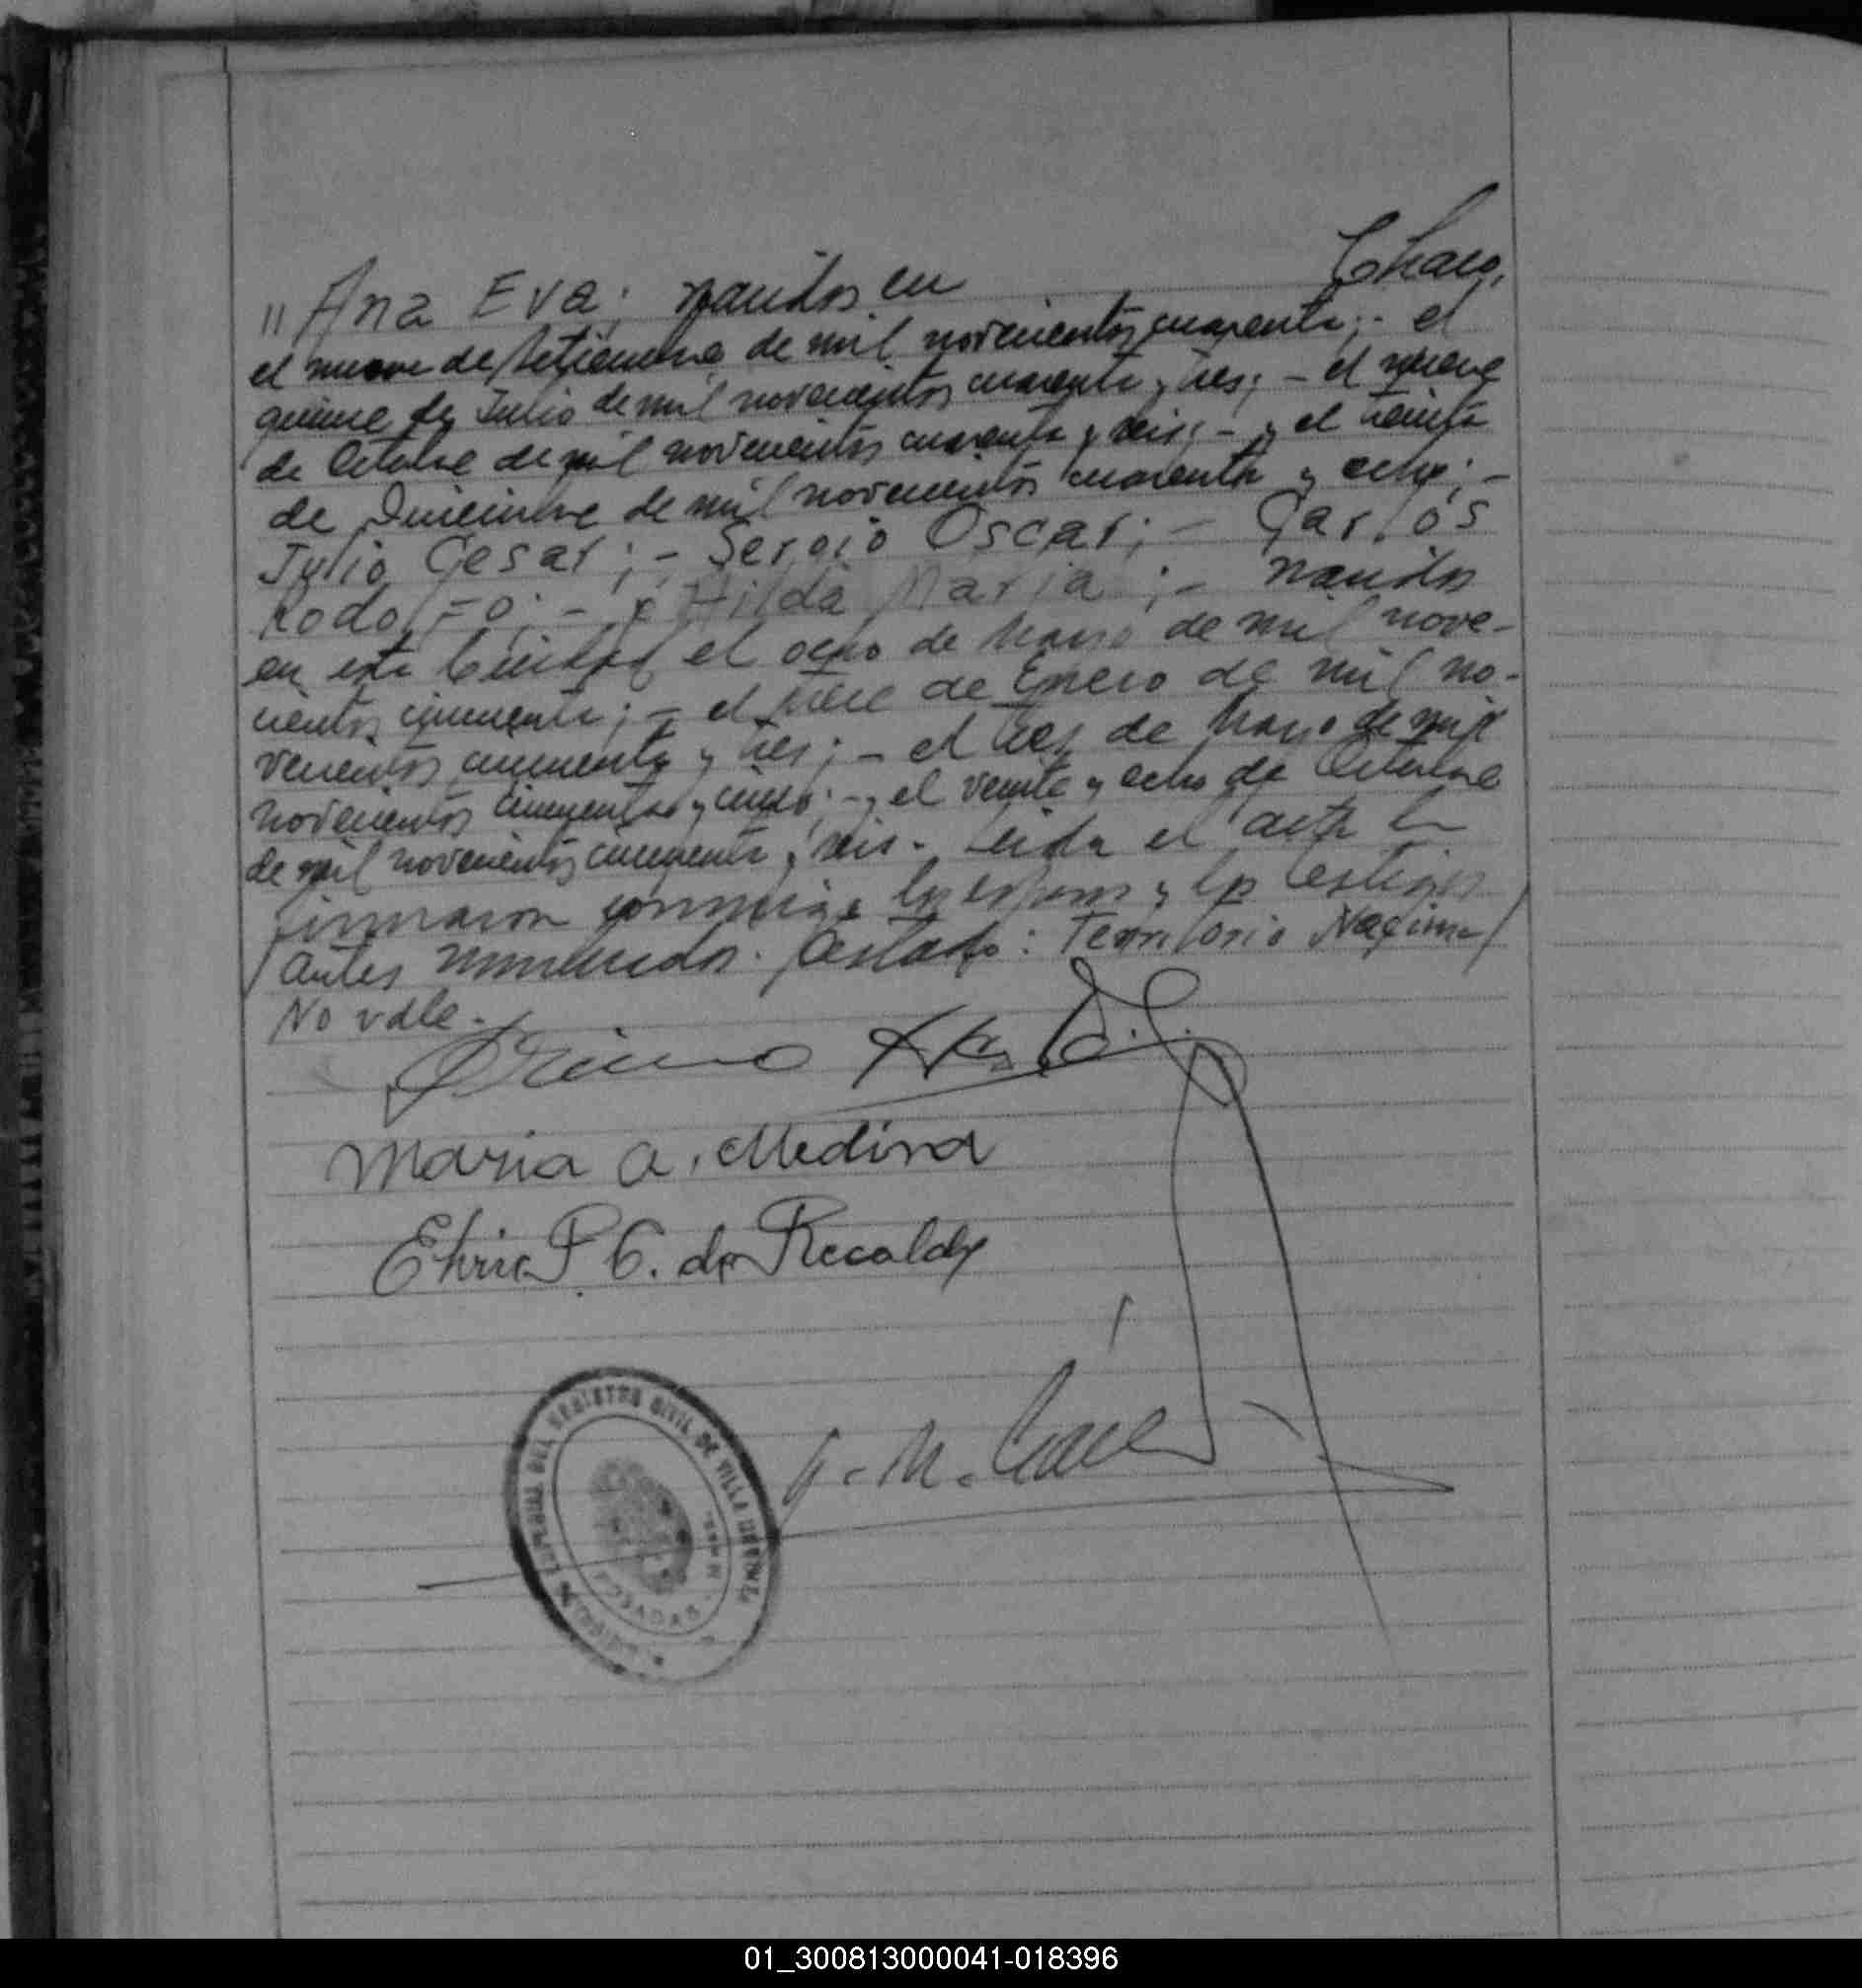 " Ana Eva; nacidos en Chaco,
el nueve de Setiembre de mil novecientos cuarenta;- el
quince de Julio de mil novecientos cuarenta y tres;- el nueve
de Octubre de mil novecientos cuarenta y seis;- y el treinta
de Diciembre de mil novecientos cuarenta y ocho;-
Julio Cesar;- Sergio Oscar;- Carlos
Rodolfo;- y Hilda Maria;- nacidos
en esta Ciudad el ocho de Marzo de mil nove-
cientos cincuenta;- el trece de Enero de mil no-
vecientos cincuenta y tres;- el tres de Marzo de mil
novecientos cincuenta y cinco;- y el veinte y ocho de Octubre
de mil novecientos cincuenta y seis. Leida el acta la
firmaron conmigo los esposos y los testigos
antes nombrados. Testado: Territorio Nacional
No vale.-
Maria A. Medina
C. de Recalde
REGISTRO CIVIL DE VILLA URQUIZA
POSADAS
01_300813000041-018396